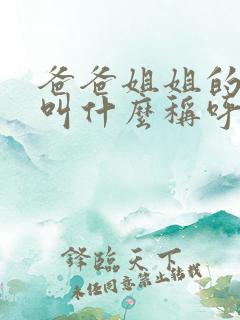 爸爸姐姐的
叫什麼稱呼
鋒臨天下
未经同意禁止转载